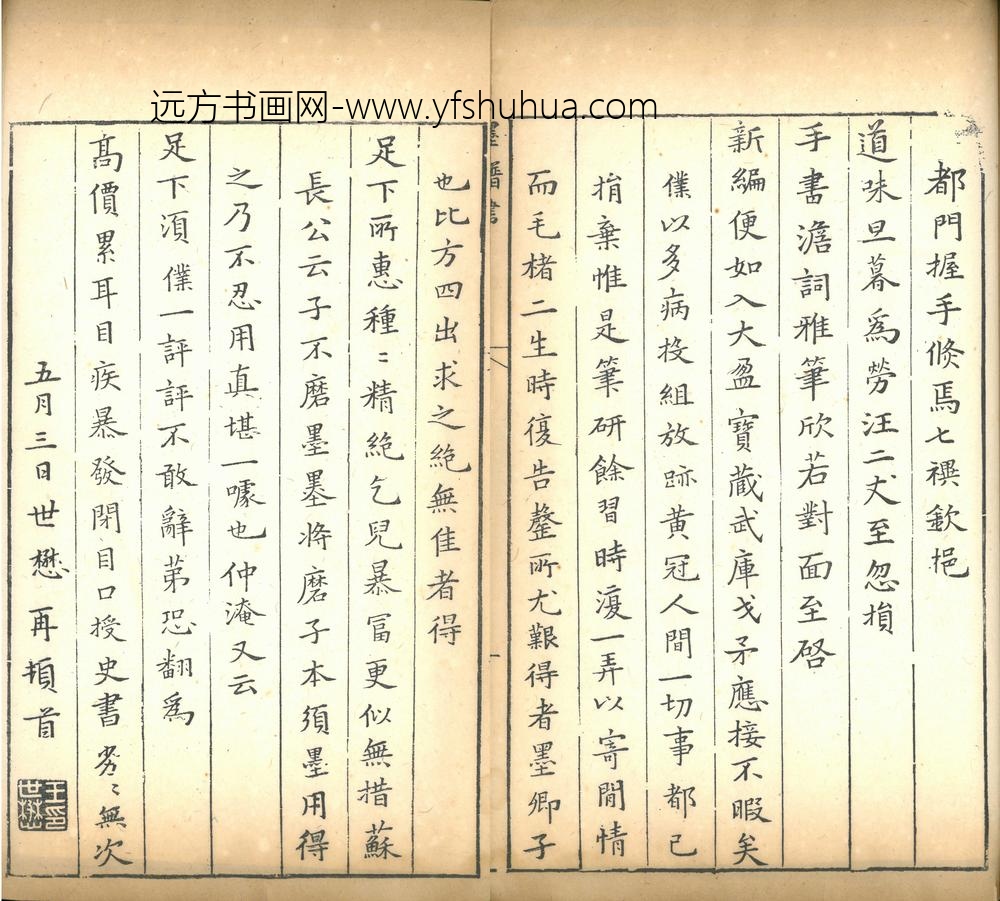 远方书画网-www.yfshuhua.com
都門握手倏焉七禩欽挹
道味旦暮為勞汪二丈至忽損
手書澹詞雅筆欣若對面至啓
新編便如入大盈寶藏武庫戈矛應接不暇矣
僕以多病投組放跡黃冠人間一切事都已
捐棄惟是筆研餘習時復一弄以寄閒情
而毛楮二生時復告罄所尤艱得者墨卿子
墨譜書
也比方四出求之絶無佳者得
足下所惠種〻精絶乞兒暴冨更似無措蘇
長公云子不磨墨墨將磨子本須墨用得
之乃不忍用真堪一噱也仲淹又云
足下湏僕一評評不敢辭第恐翻為
髙價累耳目疾暴發閉目口授史書 〻無次
五月三日世懋再頓首
王印世懋